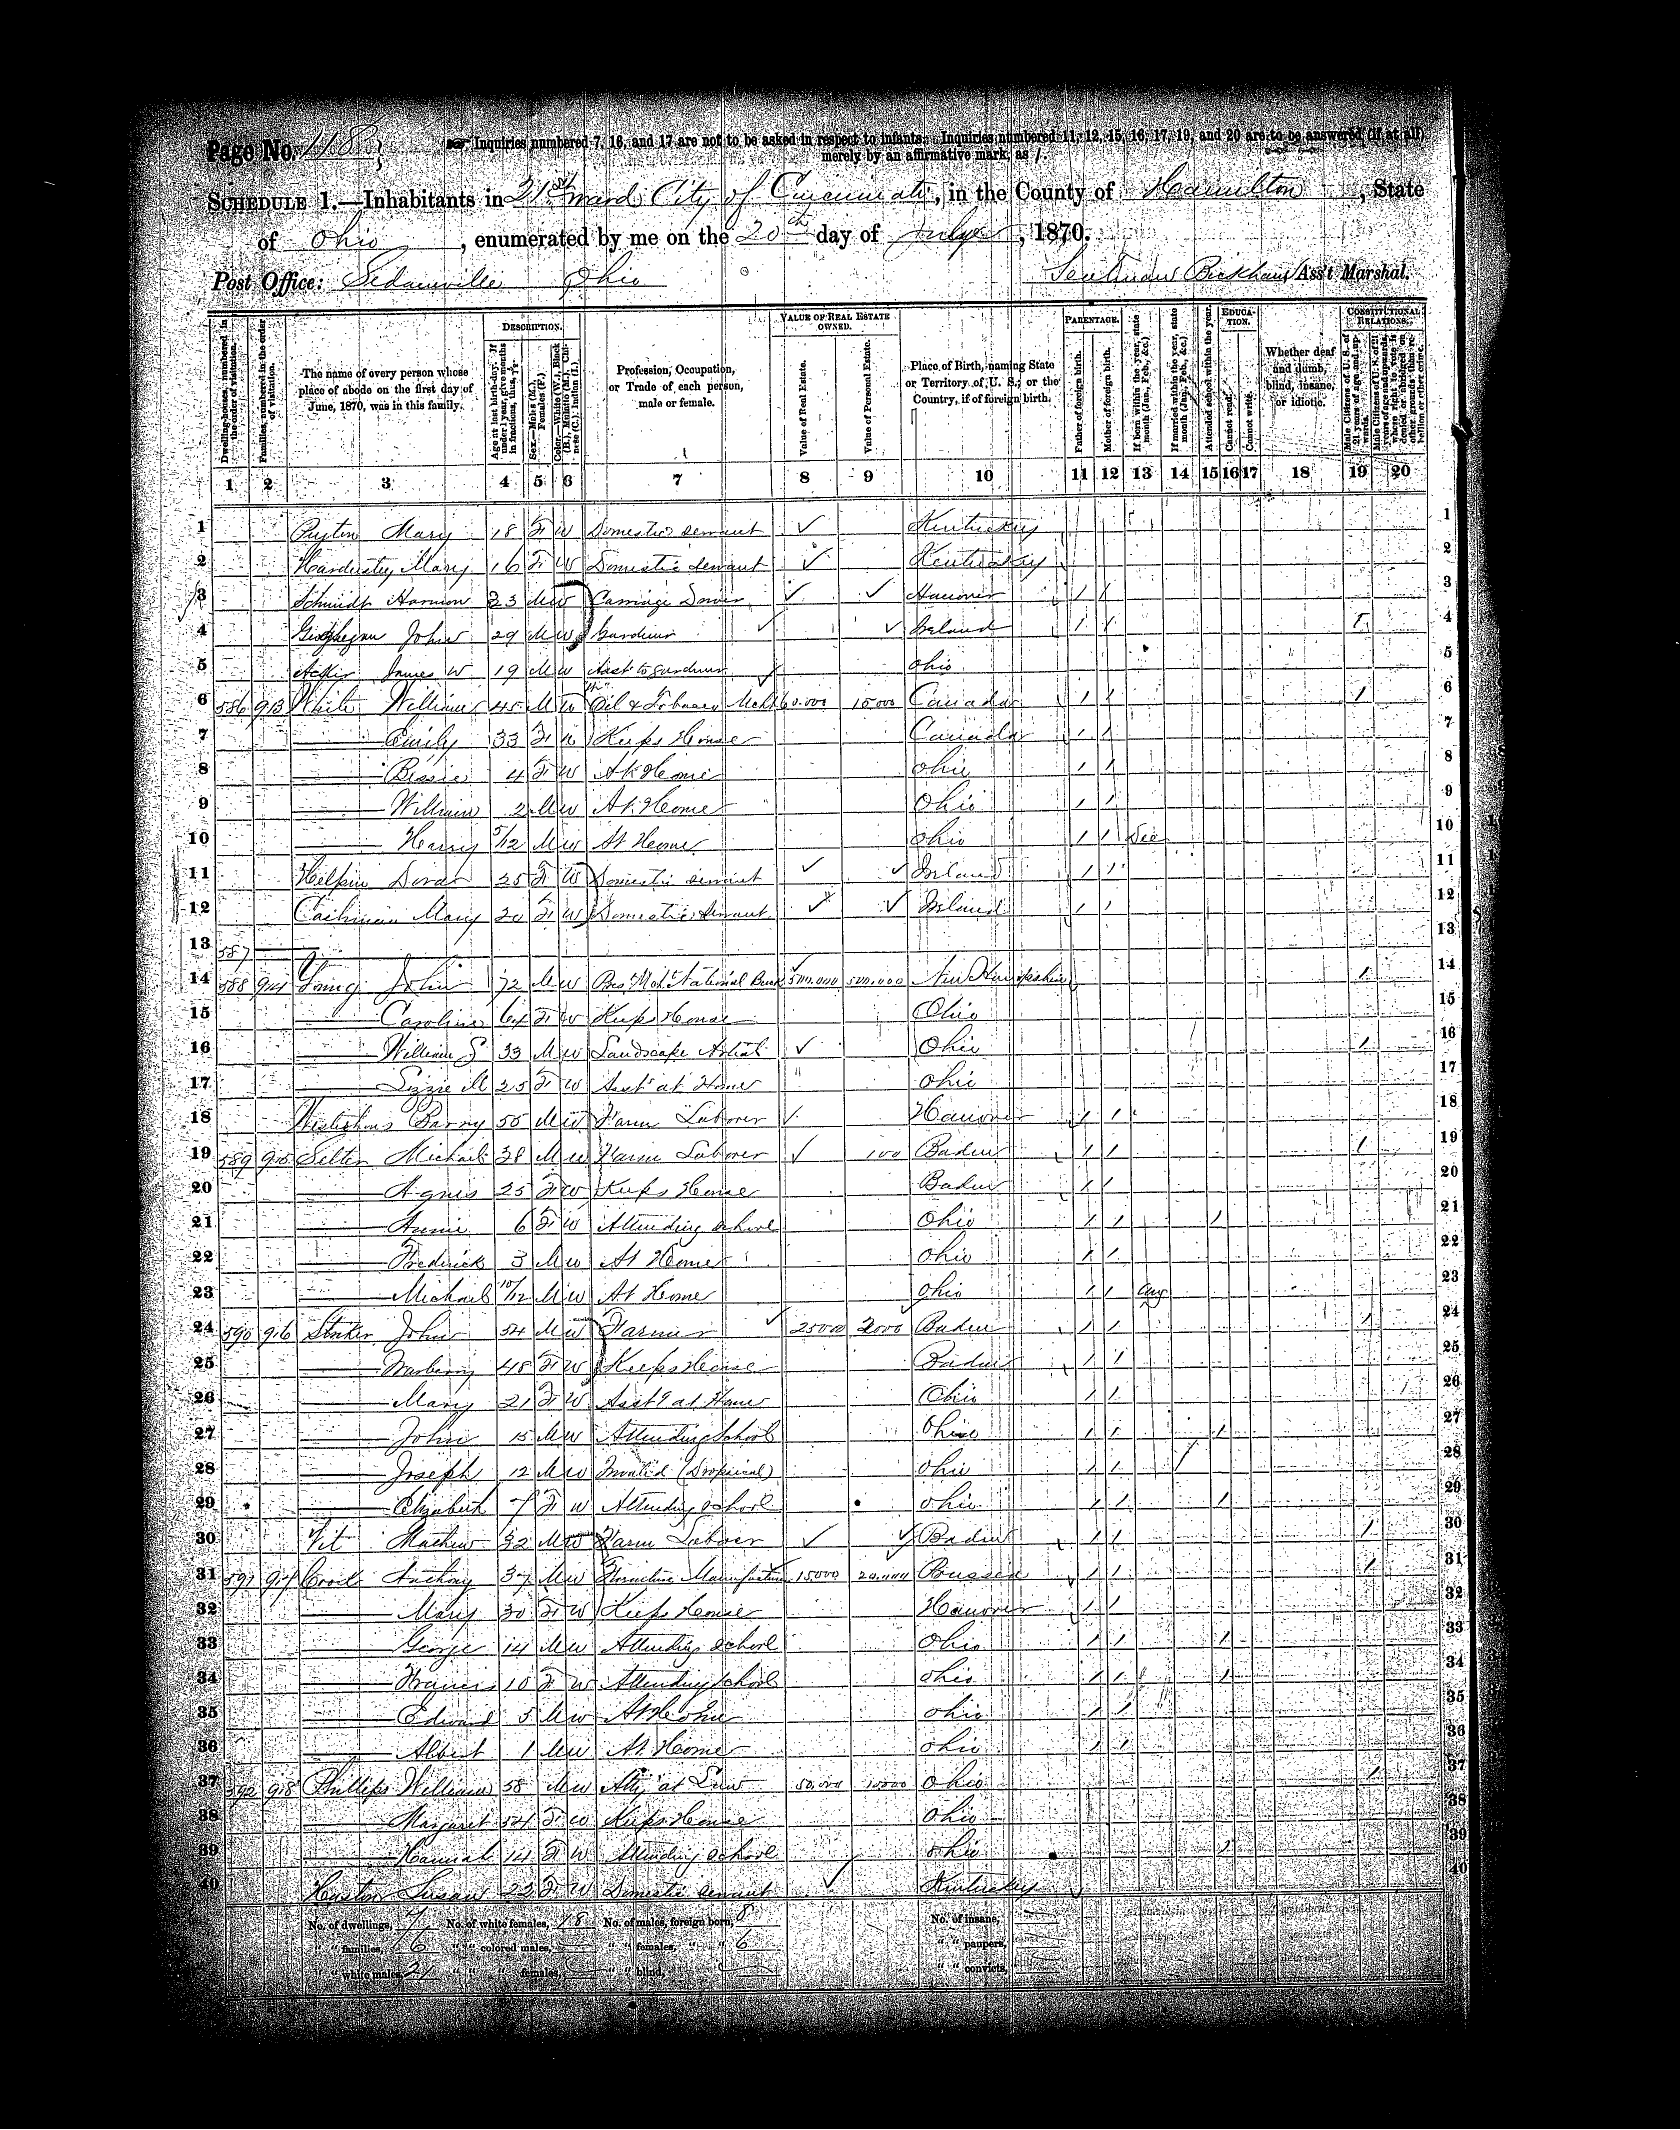 Page No. 118
Inquiries numbered 7, 16, and 17 are not to be asked in respect to infants. Inquiries numbered 11, 12, 15, 16, 17, 19, and 20 are to be answered (if at all)
merely by an affirmative mark, as /.
SCHEDULE 1.—Inhabitants in 21st ward City of Cincinnati, in the County of Hamilton, State
of Ohio, enumerated by me on the 20th day of July, 1870.
Post Office: Sedamville Ohio Ass't Marshal.
Dwelling-houses, numbered in the order of visitation.
Families, numbered in the order of visitation.
The name of every person whose place of abode on the first day of June, 1870, was in this family.
DESCRIPTION.
Age at last birth-day. If under 1 year, give months in fractions, thus, 3/12
Sex.—Males (M.), Females (F.)
Color.—White (W.), Black (B.), Mulatto (M.), Chinese (C.), Indian (I.)
Profession, Occupation, or Trade of each person, male or female.
VALUE OF REAL ESTATE OWNED.
Value of Real Estate.
Value of Personal Estate.
Place of Birth, naming State or Territory of U. S.; or the Country, if of foreign birth.
PARENTAGE.
Father of foreign birth.
Mother of foreign birth.
If born within the year, state month (Jan., Feb., &c.)
If married within the year, state month (Jan., Feb., &c.)
Attended school within the year.
EDUCATION.
Cannot read.
Cannot write.
Whether deaf and dumb, blind, insane, or idiotic.
CONSTITUTIONAL RELATIONS.
Male Citizens of U. S. of 21 years of age and upwards.
Male Citizens of U. S. of 21 years of age and upwards, whose right to vote is denied or abridged on other grounds than rebellion or other crime.
1 2 3 4 5 6 7 8 9 10 11 12 13 14 15 16 17 18 19 20
1 Mary 18 F W Domestic servant ✓ Kentucky 1
2 Hardesty Mary 16 F W Domestic servant ✓ Kentucky 2
3 Schmidt Harmon 23 M W Carriage Driver ✓ ✓ Hanover / / 3
4 John 29 M W Gardener ✓ ✓ Ireland / / 1 4
5 James W 19 M W Asst to gardener ✓ Ohio 5
6 586 913 White William 45 M W Oil & Tobacco Mcht 60.000 10000 Canada / / 1 6
7 —— Emily 33 F W Keeps House Canada / / 7
8 —— Bessie 4 F W At Home Ohio / / 8
9 —— William 2 M W At Home Ohio / / 9
10 —— Harry 5/12 M W At Home Ohio / / Dec 10
11 25 F W Domestic servant ✓ ✓ Ireland / / 11
12 Cashman Mary 20 F W Domestic servant ✓ ✓ Ireland / / 12
13 587 —— 13
14 588 914 John 72 M W Pres. Mch. National Bank 500.000 500.000 New Hampshire 1 14
15 —— Caroline 64 F W Keeps House Ohio 15
16 —— William S 33 M W Landscape Artist ✓ Ohio 1 16
17 —— Lizzie M 25 F W Asst at Home Ohio 17
18 55 M W Farm Laborer ✓ Hanover / / 18
19 589 915 Michael 38 M W Farm Laborer ✓ 100 Baden / / 1 19
20 —— Agnes 25 F W Keeps House Baden / / 20
21 —— Annie 6 F W Attending school Ohio / / 1 21
22 —— Frederick 3 M W At Home Ohio / / 22
23 —— Michael 10/12 M W At Home Ohio / / Aug 23
24 590 916 John 54 M W Farmer ✓ 25000 2000 Baden / / 1 24
25 —— 48 F W Keeps House Baden / / 25
26 —— Mary 21 F W Asst at Home Ohio / / 26
27 —— John 15 M W Attending School Ohio / / 1 27
28 —— Joseph 12 M W Invalid (Dropsical) Ohio / / 28
29 —— Elizabeth 7 F W Attending school Ohio / / 1 29
30 Vit Mathew 32 M W Farm Laborer ✓ ✓ Baden / / 1 30
31 591 917 Anthony 37 M W Furniture Manufacturer 15000 20.000 Prussia / / 1 31
32 —— Mary 30 F W Keeps House Hanover / / 32
33 —— George 14 M W Attending school Ohio / / 1 33
34 —— Francis 10 F W Attending school Ohio / / 1 34
35 —— Edward 5 M W At Home Ohio / / 35
36 —— Albert 1 M W At Home Ohio / / 36
37 592 918 Phillips William 58 M W Atty at Law 50.000 10000 Ohio 1 37
38 —— Margaret 54 F W Keeps House Ohio 38
39 —— Hannah 14 F W Attending school Ohio 1 39
40 Huston Susan 23 F W Domestic servant ✓ Kentucky 40
No. of dwellings, 7 No. of white females, 18 No. of males, foreign born, 8 No. of insane,
" " families, 6 " " colored males, " " females, " " 6 " " paupers,
" " white males, 21 " " " females, " " blind, " " convicts,